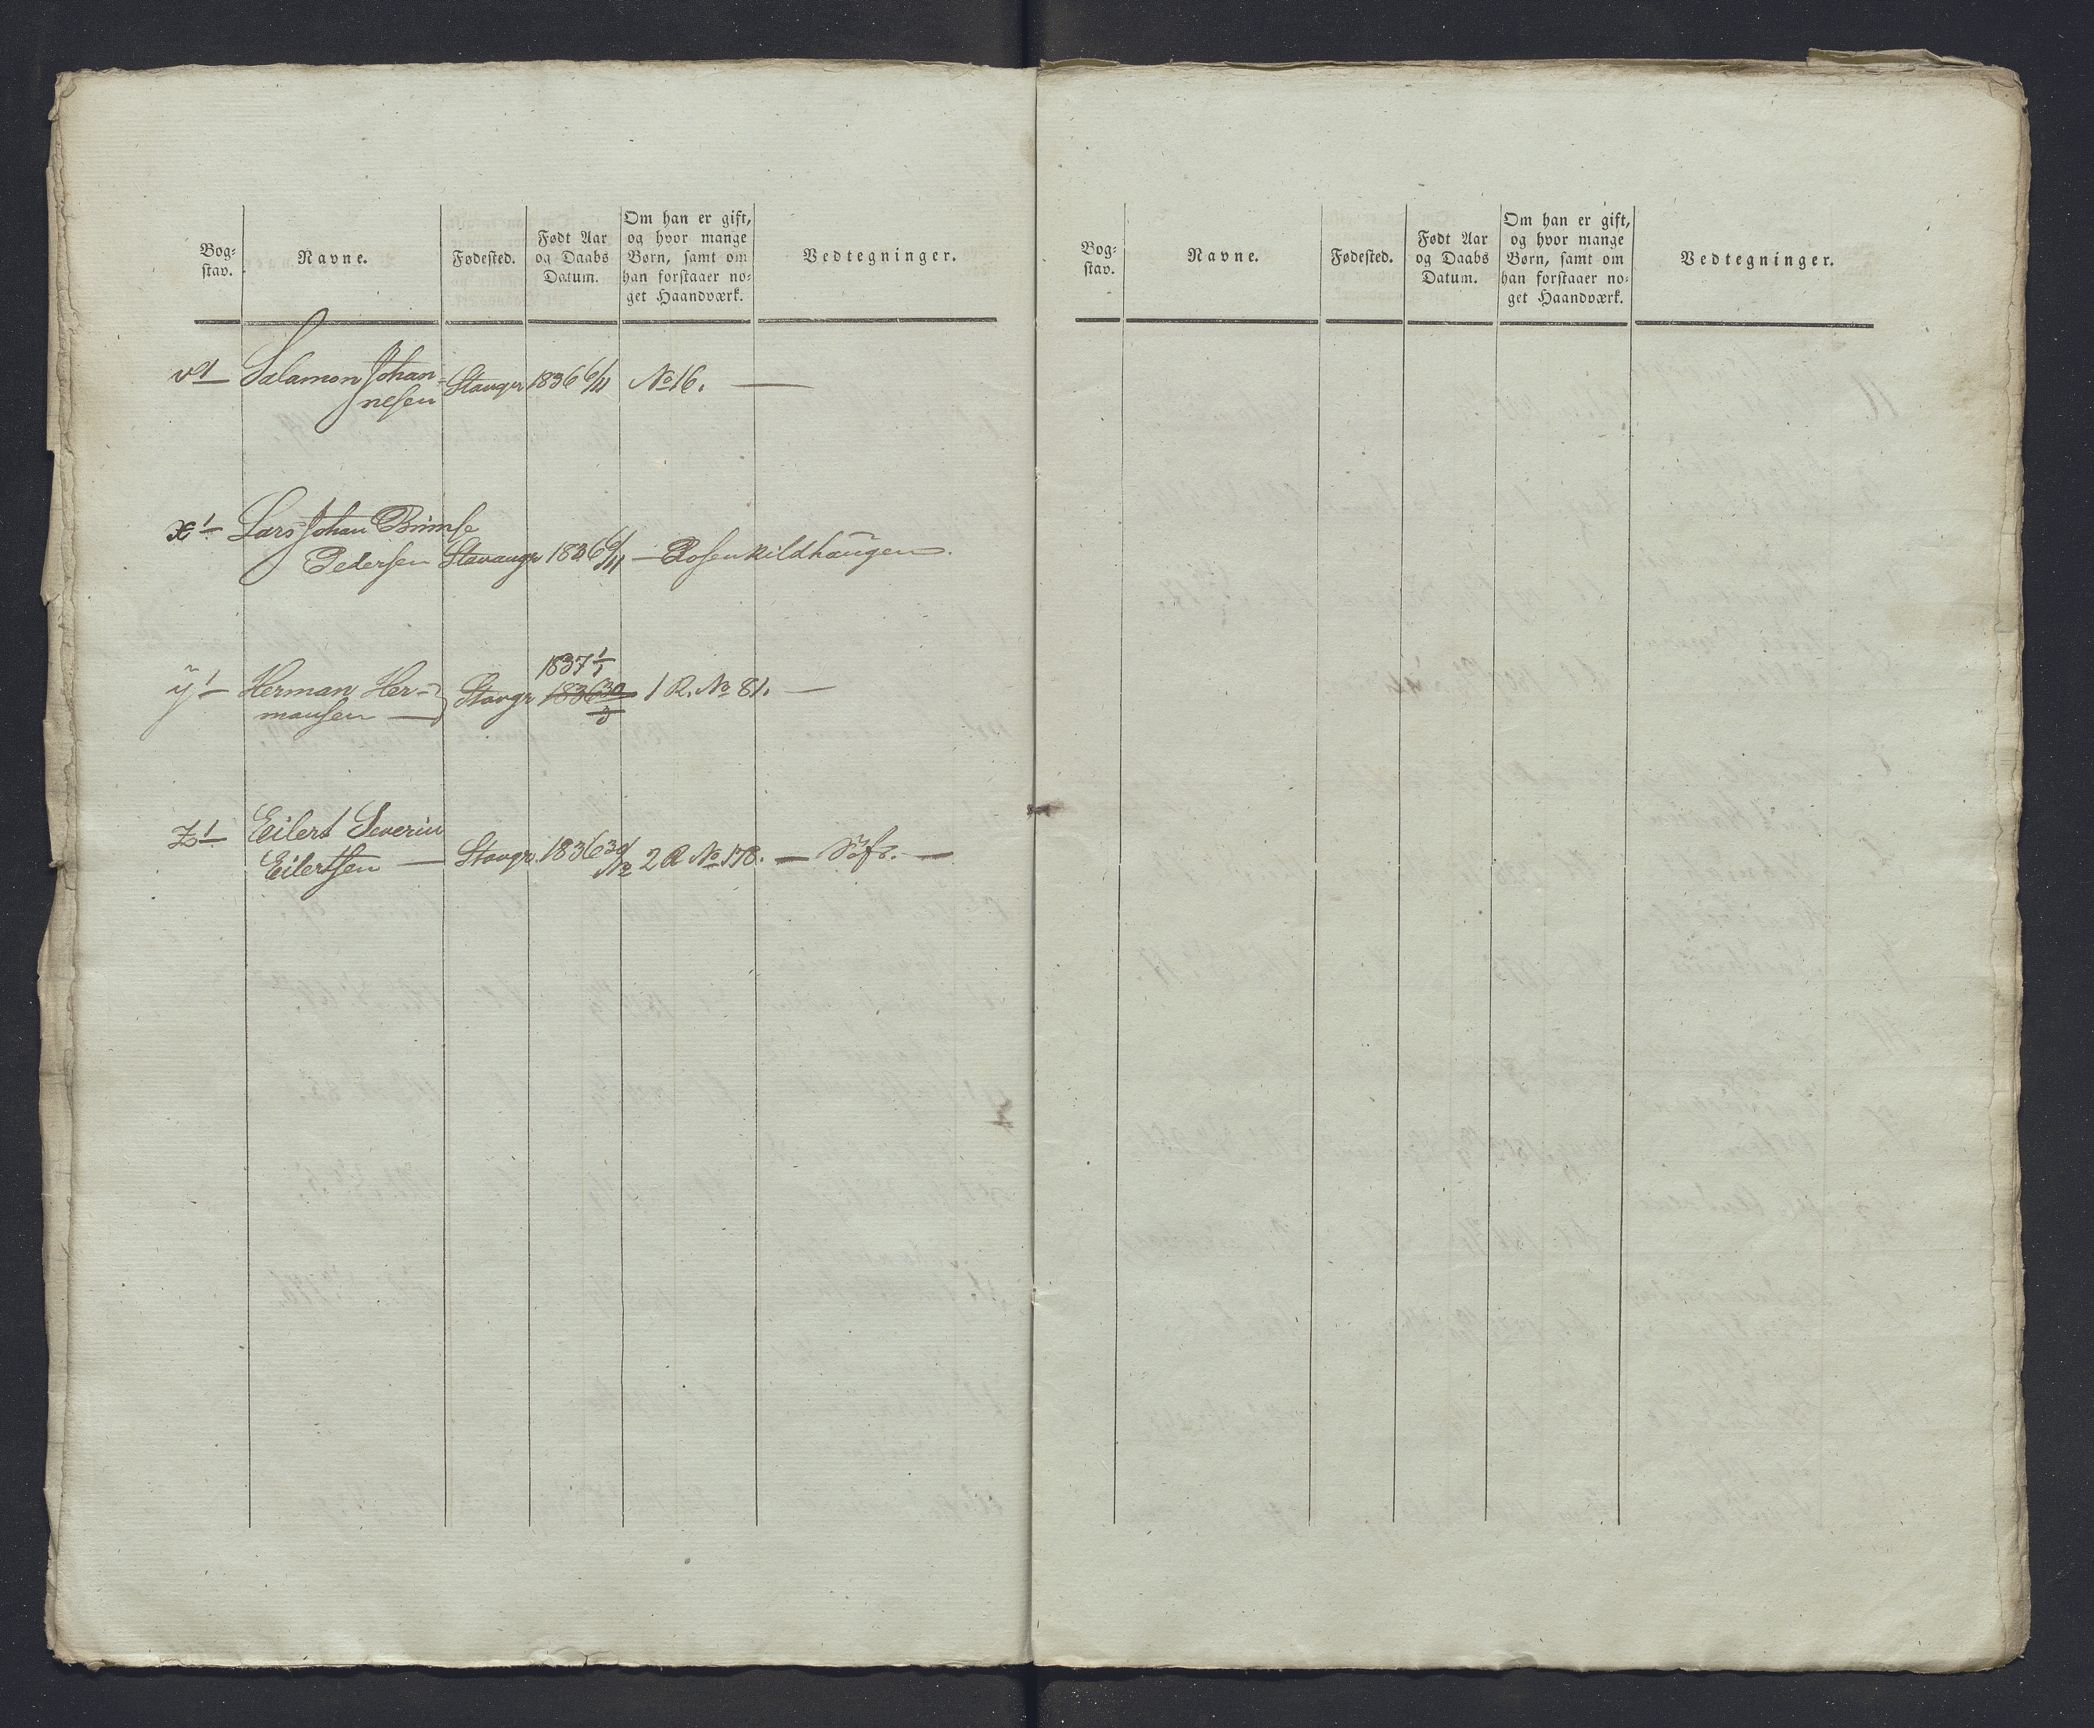 Bog-
stav.
Navne.
Fødested.
Født Aar
og Daabs
Datum.
Om han er gift,
og hvor mange
Børn, samt om
han forstaaer no-
get Haandværk.
Vedtegninger.
v 1 Salamon Johan- Stavgr 1836 6/11 No 16. —
nesen
x 1 Lars Johan Brimse
Pedersen Stavangr 1836 6/11 — Rosenkildhaugen.
1837 1/1
y 1 Herman Her- Stavgr 1836 30/ 1 R. No 81. —
mansen —
z 1 Eilert Severin
Eilertsen — Stavgr. 1836 30/12 2 R No 178. — Söfr. —
Bog-
stav.
Navne.
Fødested.
Født Aar
og Daabs
Datum.
Om han er gift,
og hvor mange
Børn, samt om
han forstaaer no-
get Haandværk.
Vedtegninger.